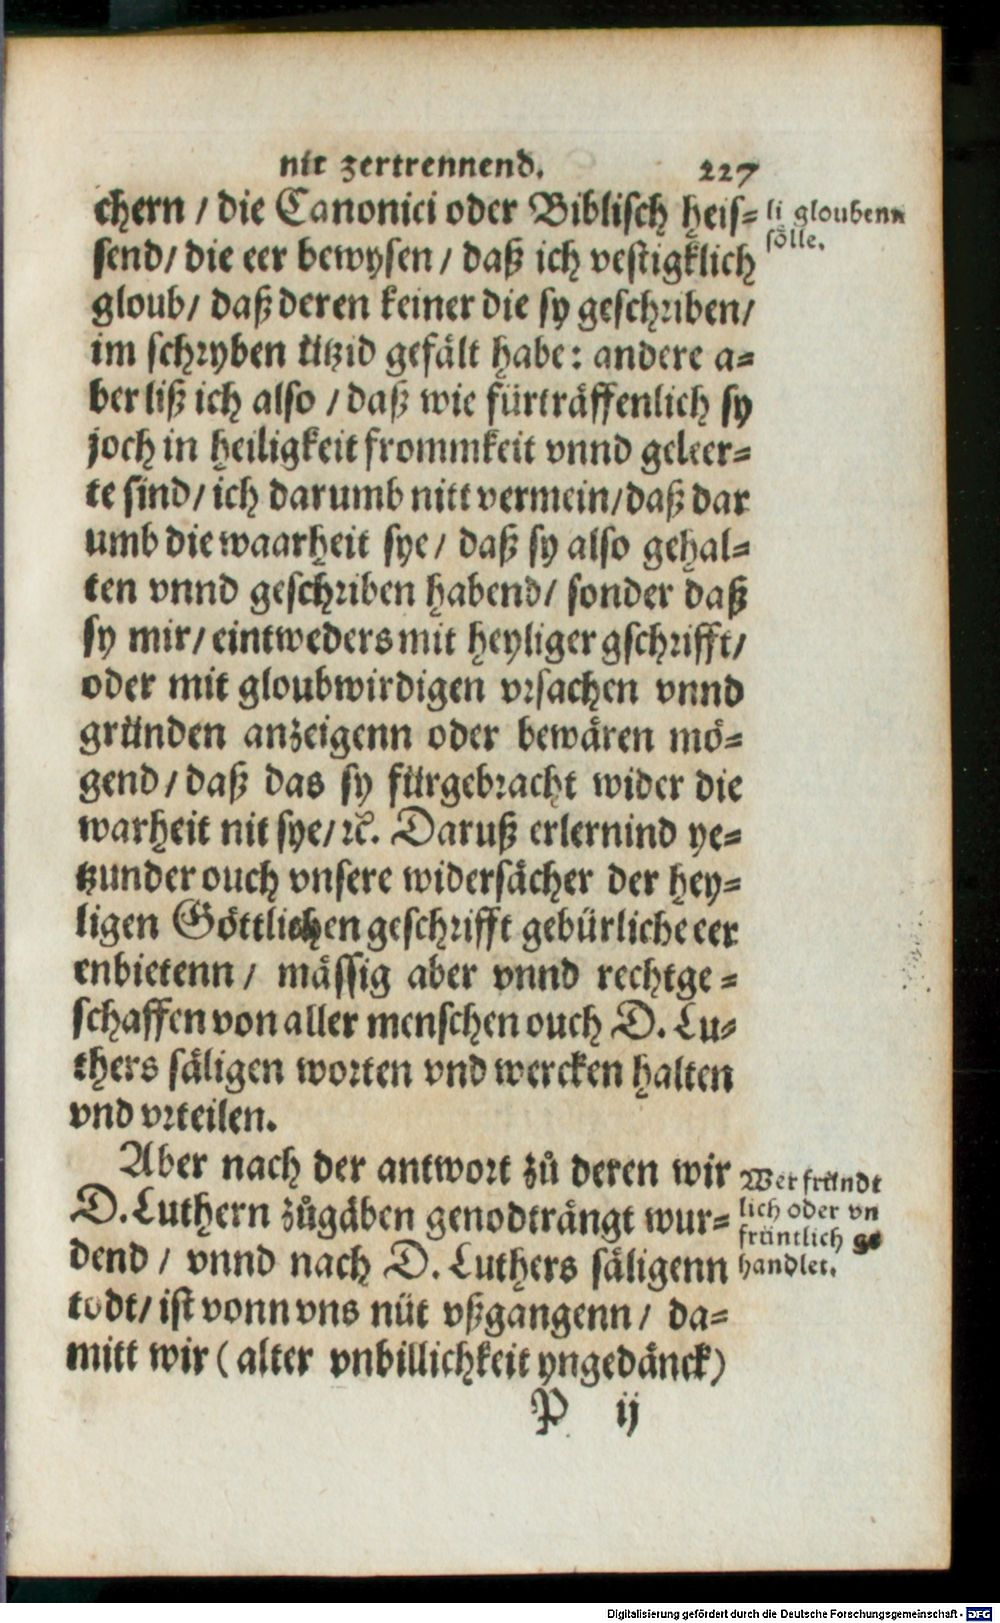 nit zertrennend. 227
chern / die Canonici oder Biblisch heis=
send / die eer bewysen / daß ich vestigklich
gloub / daß deren keiner die sy geschriben /
im schryben ützid gefält habe: andere a=
ber liß ich also / daß wie fürträffenlich sy
joch in heiligkeit frommkeit vnnd geleer=
te sind / ich darumb nitt vermein / daß dar
umb die waarheit sye / daß sy also gehal=
ten vnnd geschriben habend / sonder daß
sy mir / eintweders mit heyliger gschrifft /
oder mit gloubwirdigen vrsachen vnnd
gründen anzeigenn oder bewären mö=
gend / daß das sy fürgebracht wider die
warheit nit sye / ꝛc. Daruß erlernind ye=
tzunder ouch vnsere widersächer der hey=
ligen Göttlichen geschrifft gebürliche eer
enbietenn / mässig aber vnnd rechtge=
schaffen von aller menschen ouch D. Lu=
thers säligen worten vnd wercken halten
vnd vrteilen.
Aber nach der antwort zů deren wir
D. Luthern zůgäben genodträngt wur=
dend / vnnd nach D. Luthers säligenn
todt / ist vonn vns nüt vßgangenn / da=
mitt wir (alter vnbillichkeit yngedänck)
P ij
li gloubenn
sölle.
Wer fründt
lich oder vn
früntlich ge
handlet.
Digitalisierung gefördert durch die Deutsche Forschungsgemeinschaft - DFG